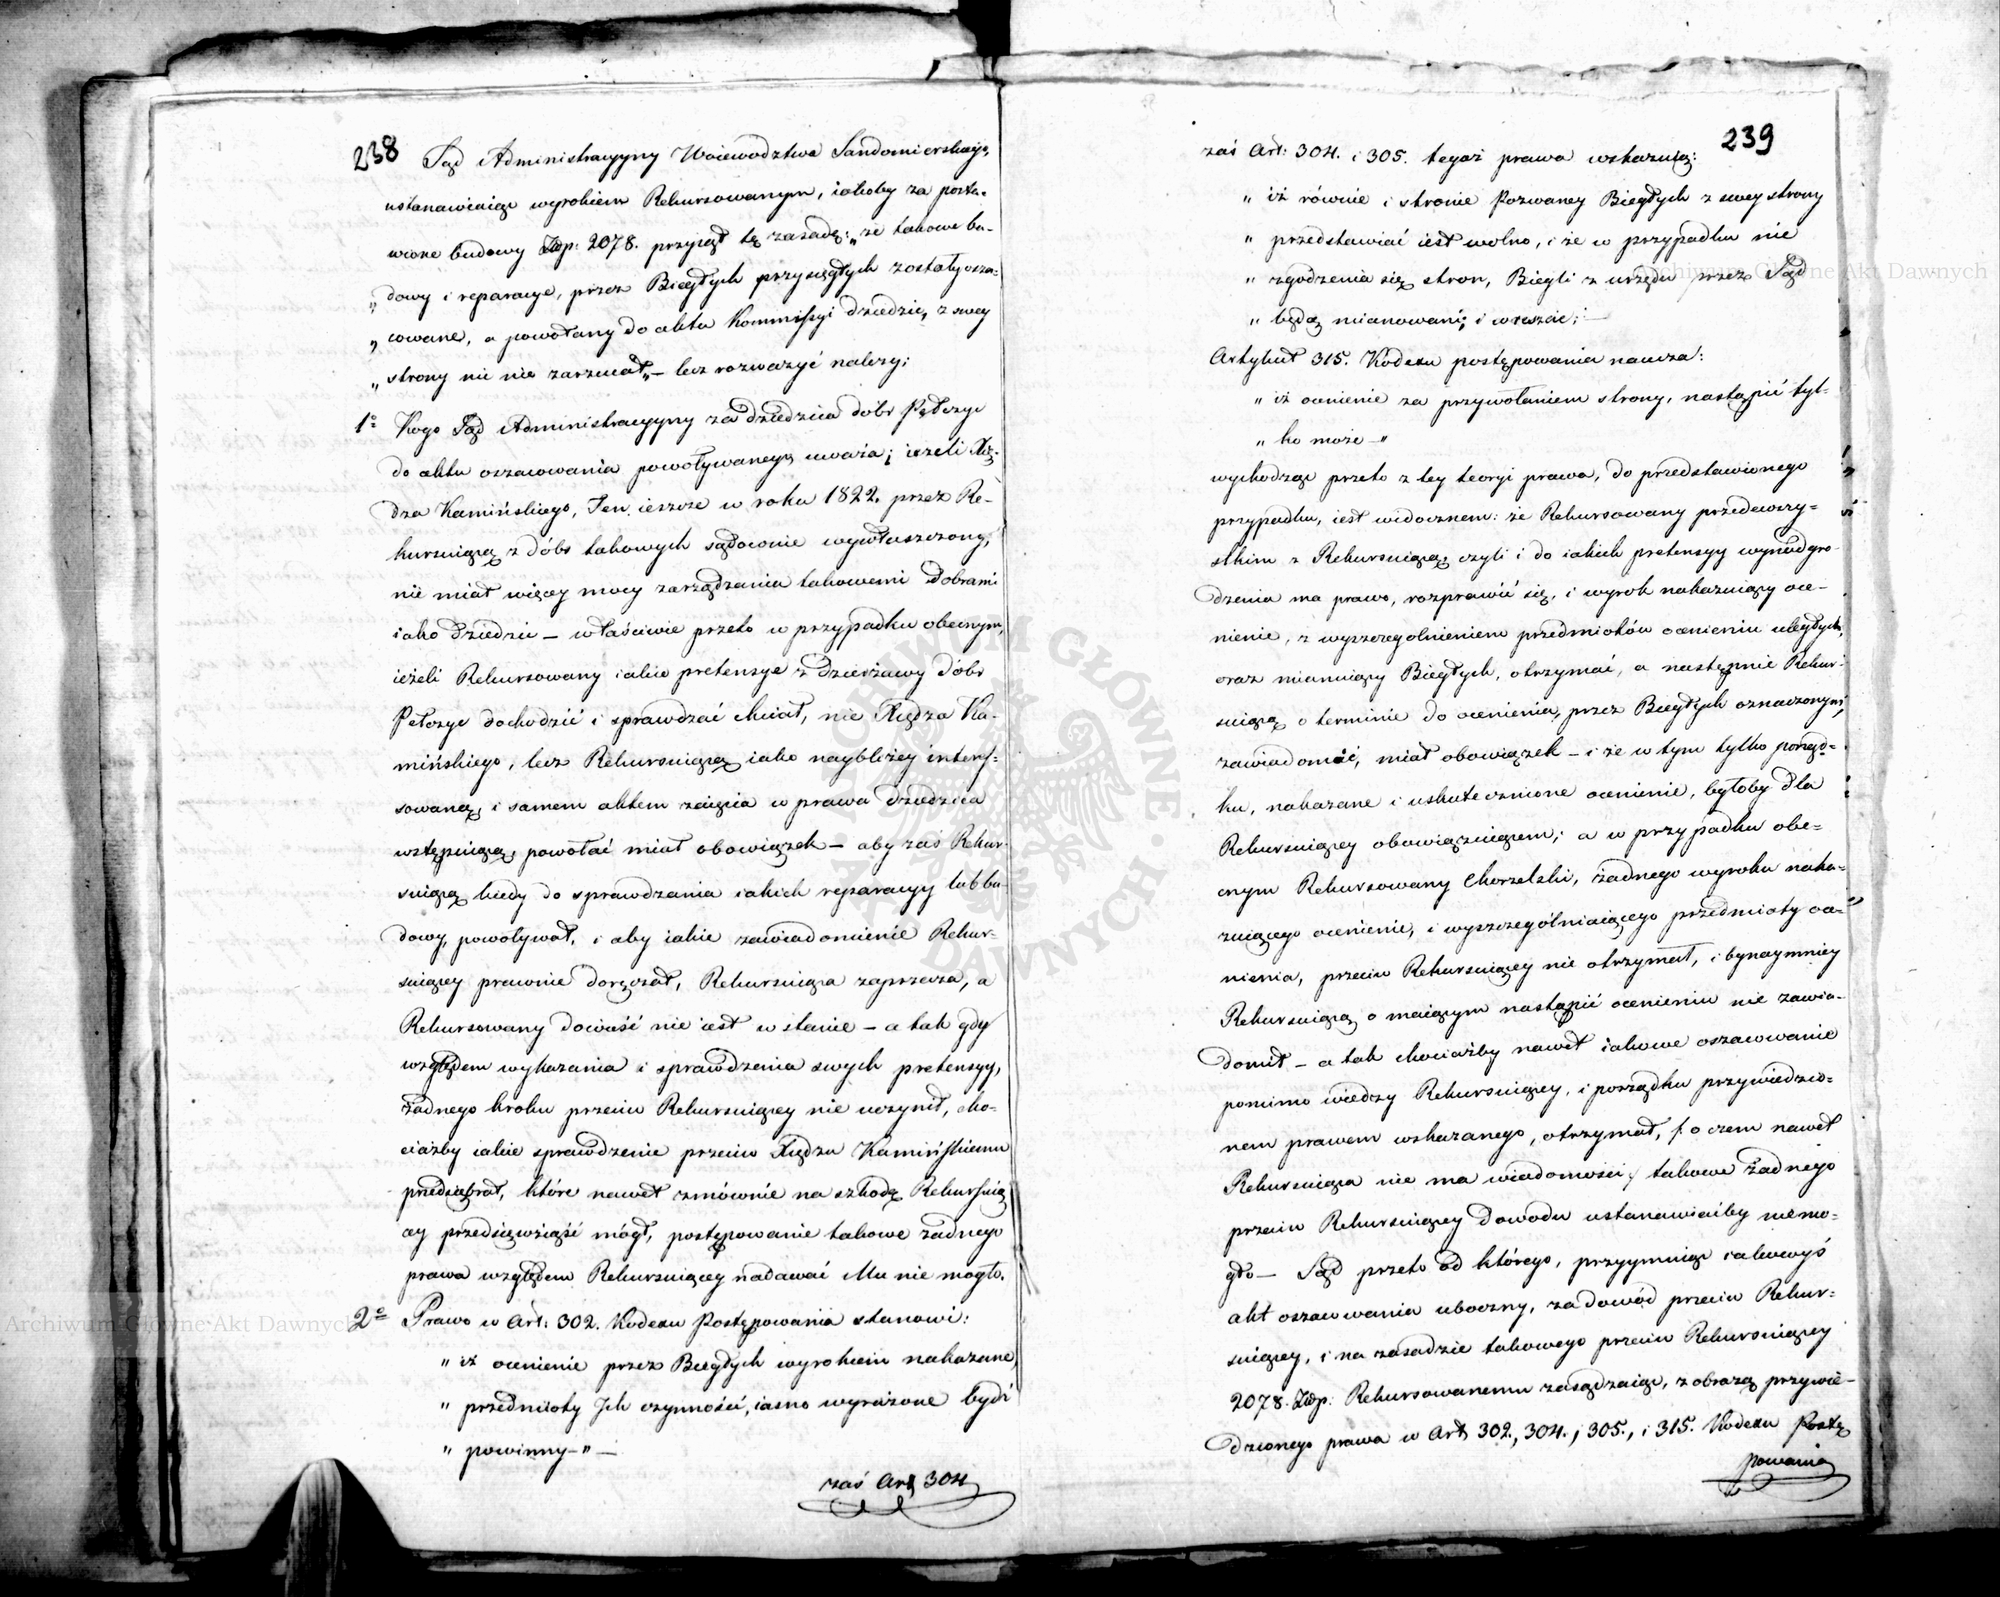 238
Sąd Administracyyny Woiewodztwa Sandomierskiego,
ustanawiaiąc wyrokiem Rekursowanym, iakoby za posta-
wione budowy Złp: 2078. przyiął tę zasadę: „że takowe bu-
„ dowy i reparacye, przez Biegłych przysięgłych zostały osza-
„ cowane, a powołany do aktu Kommissyi dziedzic, z swey
„ strony nic nie zarzucał„ – lecz rozważyć należy;
1o Kogo Sąd Administracyyny za dziedzica dóbr Pełczyc
do aktu oszacowania powoływanego uważa; ieżeli Xię-
dza Kamińskiego, Ten ieszcze w roku 1822. przez Re-
kursuiącą z dóbr takowych sądownie wywłaszczony,
nie miał więcey mocy zarządzania takowemi Dobrami
iako Dziedzic – właściwie przeto w przypadku obecnym,
ieżeli Rekursowany iakie pretensye z dzierżawy dóbr
Pełczyc dochodzić i sprawdzać chciał, nie Xiędza Ka-
mińskiego, lecz Rekursuiącą iako naybliżey interes-
sowaną, i samem aktem zaięcia w prawa dziedzica
wstępuiącą, powołać miał obowiązek – aby zaś Rekur-
suiącą kiedy do sprawdzania iakich reparacyy lub bu-
dowy, powoływał, i aby iakie zawiadomienie Rekur-
suiącey prawnie doręczał, Rekursuiąca zaprzecza, a
Rekursowany dowieść nie iest w stanie – a tak gdy
względem wykazania i sprawdzenia swych pretensyy,
żadnego kroku przeciw Rekursuiącey nie uczynił, cho-
ciażby iakie sprawdzenie przeciw Xiędzu Kamińskiemu
przedsiębrał, które nawet zmównie na szkodę Rekursuią
cy przedsięwziąść mógł, postępowanie takowe żadnego
prawa względem Rekursuiącey nadawać Mu nie mogło.
2o Prawo w Art: 302. Kodexu Postępowania stanowi:
„ iż ocenienie przez Biegłych wyrokiem nakazane,
„ przedmioty Ich czynności, iasno wyrażone bydź
„ powinny – „ –
zaś Art. 304
239
zaś Art: 304. i 305. tegoż prawa wskazuią:
„ iż równie i stronie Pozwaney Biegłych z swey strony
„ przedstawiać iest wolno, i że w przypadku nie
„ zgodzenia się stron, Biegli z urzędu przez Sąd
„ będą mianowani; i wreszcie; –
Artykuł 315. Kodexu postępowania naucza:
„ iż ocenienie za przywołaniem strony, nastąpić tyl-
„ ko może – „
wychodząc przeto z tey teoryi prawa, do przedstawionego
przypadku, iest widocznem: że Rekursowany przedewszy-
stkim z Rekursuiącą, czyli i do iakich pretensyy wynadgro-
dzenia ma prawo, rozprawić się, i wyrok nakazuiący oce-
nienie, z wyszczególnieniem przedmiotów ocenieniu uległych,
oraz mianuiący Biegłych, otrzymać, a następnie Rekur-
suiącą o terminie do ocenienia, przez Biegłych oznaczonym,
zawiadomić, miał obowiązek – i że w tym tylko porząd-
ku, nakazane i uskutecznione ocenienie, byłoby dla
Rekursuiącey obowiązuiącem; a w przypadku obe-
cnym Rekursowany Chorzelski, żadnego wyroku naka-
zuiącego ocenienie, i wyszczególniaiącego przedmioty oce-
nienia, przeciw Rekursuiącey nie otrzymał, i bynaymniey
Rekursuiącą o maiącym nastąpić ocenieniu nie zawia-
domił – a tak chociażby nawet iakowe oszacowanie
pomimo wiedzy Rekursuiącey, i porządku przywiedzio-
nem prawem wskazanego, otrzymał, /: o czem nawet
Rekursuiąca nie ma wiadomości :/ takowe żadnego
przeciw Rekursuiącey dowodu ustanawiaćby niemo-
gło – Sąd przeto od którego, przyymuiąc iakowyś
akt oszacowania uboczny, za dowód przeciw Rekur-
suiącey, i na zasadzie takowego przeciw Rekursuiącey
2078. Złp: Rekursowanemu zasądzaiąc, z obrazą przywie-
dzionego prawa w Art. 302., 304., 305., i 315. Kodexu Postę
powania
Archiwum Główne Akt Dawnych
Archiwum Główne Akt Dawnych
ARCHIWUM GŁÓWNE AKT DAWNYCH